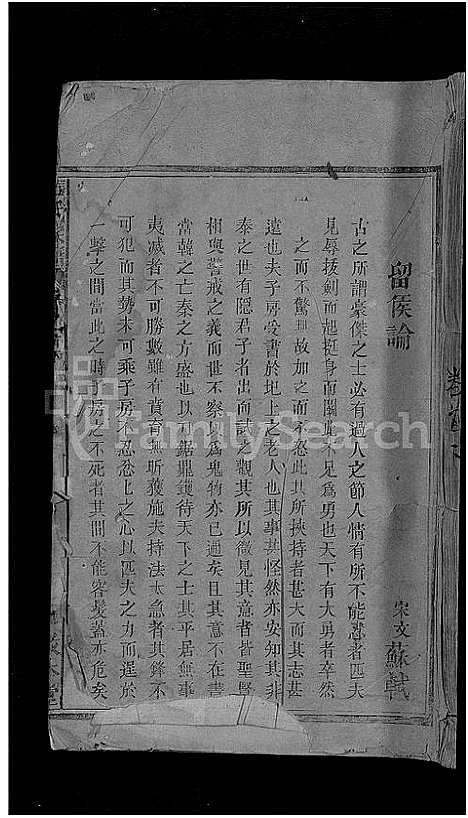 留侯論
宋文蘇軾
古之所謂豪傑之士必有過人之節人情有所不能忍者匹夫
見辱拔劍而起挺身而鬭此不足爲勇也天下有大勇者卒然
之而不驚 故加之而不怒此其所挾持者甚大而其志甚
遠也夫子房受書於圯上之老人也其事甚怪然亦安知其非
秦之世有隱君子者出而試之觀其所以微見其意者皆聖賢
相與警戒之義而世不察以爲鬼物亦已過矣且其意不在書
當韓之亡秦之方盛也以刀鋸鼎鑊待天下之士其平居無事
夷滅者不可勝數雖有賁育無所獲施夫持法太急者其鋒不
可犯而其勢未可乘子房不忍忿忿之心以匹夫之力而逞於
一擊之間當此之時子房之不死者其間不能容髮蓋亦危矣
FamilySearch